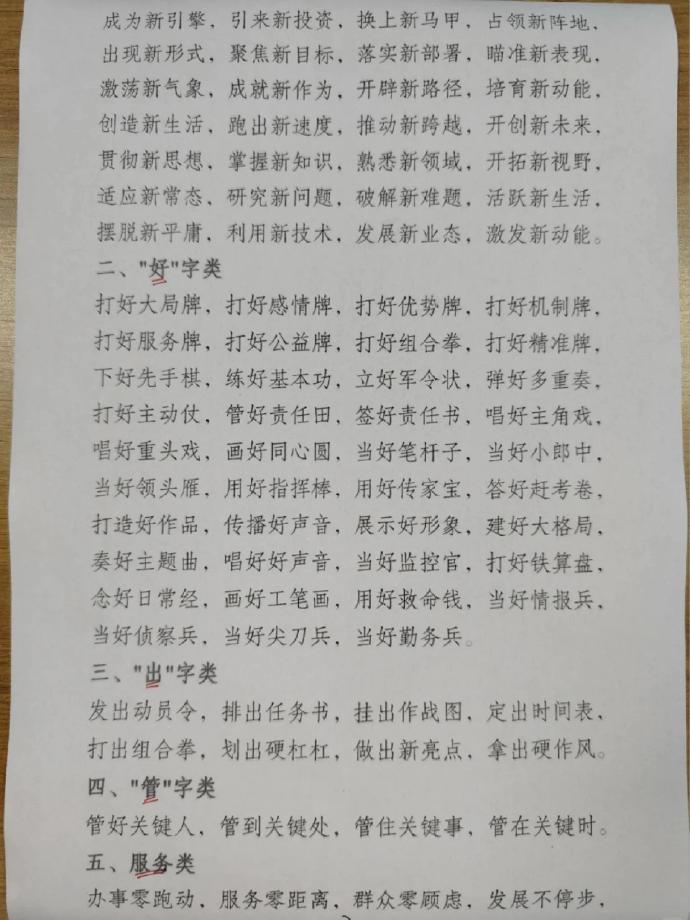 成为新引擎，引来新投资，换上新马甲，占领新阵地，
出现新形式，聚焦新目标，落实新部署，瞄准新表现，
激荡新气象，成就新作为，开辟新路径，培育新动能，
创造新生活，跑出新速度，推动新跨越，开创新未来，
贯彻新思想，掌握新知识，熟悉新领域，开拓新视野，
适应新常态，研究新问题，破解新难题，活跃新生活，
摆脱新平庸，利用新技术，发展新业态，激发新动能。
二、"好"字类
打好大局牌，打好感情牌，打好优势牌，打好机制牌，
打好服务牌，打好公益牌，打好组合拳，打好精准牌，
下好先手棋，练好基本功，立好军令状，弹好多重奏，
打好主动仗，管好责任田，签好责任书，唱好主角戏，
唱好重头戏，画好同心圆，当好笔杆子，当好小郎中，
当好领头雁，用好指挥棒，用好传家宝，答好赶考卷，
打造好作品，传播好声音，展示好形象，建好大格局，
奏好主题曲，唱好好声音，当好监控官，打好铁算盘，
念好日常经，画好工笔画，用好救命钱，当好情报兵，
当好侦察兵，当好尖刀兵，当好勤务兵。
三、"出"字类
发出动员令，排出任务书，挂出作战图，定出时间表，
打出组合拳，划出硬杠杠，做出新亮点，拿出硬作风。
四、"管"字类
管好关键人，管到关键处，管住关键事，管在关键时。
五、服务类
办事零跑动，服务零距离，群众零顾虑，发展不停步，